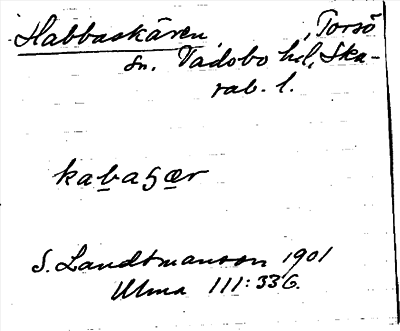 Habbaskären, Torsö
sn. Vadsbo hd, Ska-
rab. l.
kabasær
S. Landtmanson 1901
Ulma 111:336.